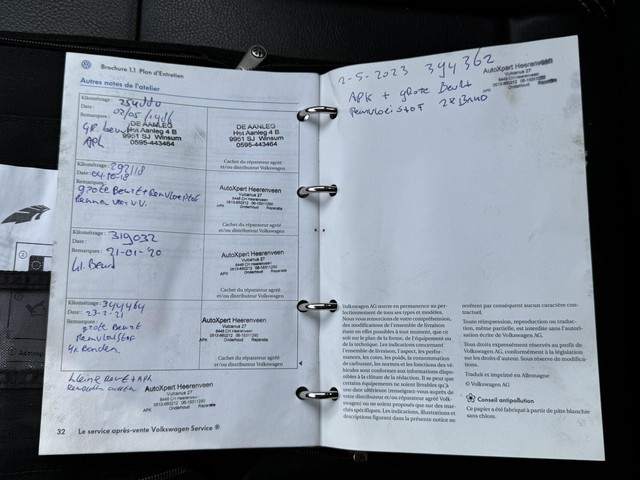 Brochure 1.1 Plan d'Entretien
Autres notes de l'atelier
Kilométrage :
Date :
Remarques :
APK
DE AANLEG
Hst Aanleg 4 B
9951 SJ Winsum
0595-443464
DE AANLEG
Hst Aanleg 4 B
9951 SJ Winsum
0595-443464
Cachet du réparateur agréé
et/ou distributeur Volkswagen
Kilométrage : 293118
Date : 04-10-18
Remarques :
grote Beurt + Remvloeistof
AutoXpert Heerenveen
Vulcanus 27
8448 CH Heerenveen
APK Onderhoud Reparatie
Cachet du réparateur agréé
et/ou distributeur Volkswagen
Kilométrage : 319032
Date :
Remarques : 21-01-'20
kl. Beurt
AutoXpert Heerenveen
Vulcanus 27
8448 CH Heerenveen
APK Onderhoud Reparatie
Cachet du réparateur agréé
et/ou distributeur Volkswagen
Kilométrage : 344464
Date : 23-2-21
Remarques :
grote Beurt
Remvloeistof
AutoXpert Heerenveen
Vulcanus 27
8448 CH Heerenveen
APK Onderhoud Reparatie
Cachet du réparateur agréé
et/ou distributeur Volkswagen
kleine Beurt + APK
AutoXpert Heerenveen
Vulcanus 27
8448 CH Heerenveen
APK Onderhoud Reparatie
32 Le service après-vente Volkswagen Service ®
2-5-2023 394362
APK + grote Beurt
Remvloeistof 2x Band
AutoXpert Heerenveen
Vulcanus 27
8448 CH Heerenveen
Volkswagen AG œuvre en permanence au per-
fectionnement de tous ses types et modèles.
Nous vous remercions de votre compréhension,
des modifications de l'ensemble de livraison
étant en effet possibles à tout moment, que ce
soit sur le plan de la forme, de l'équipement ou
de la technique. Les indications concernant
l'ensemble de livraison, l'aspect, les perfor-
mances, les cotes, les poids, la consommation
de carburant, les normes et les fonctions des vé-
hicules sont conformes aux informations dispo-
nibles à la clôture de la rédaction. Il se peut que
certains équipements ne soient livrables qu'à
une date ultérieure (renseignez-vous auprès de
votre distributeur et/ou réparateur agréé Volk-
swagen) ou ne soient proposés que sur des mar-
chés spécifiques. Les indications, illustrations et
descriptions figurant dans la présente notice ne
revêtent par conséquent aucun caractère con-
tractuel.
Toute réimpression, reproduction ou traduction,
même partielle, est interdite sans l'autori-
sation écrite de Volkswagen AG.
Tous droits expressément réservés au profit de
Volkswagen AG, conformément à la législation
sur les droits d'auteur. Sous réserve de modifica-
tions.
Traduit et imprimé en Allemagne
© Volkswagen AG
Conseil antipollution
Ce papier a été fabriqué à partir de pâte blanchie
sans chlore.